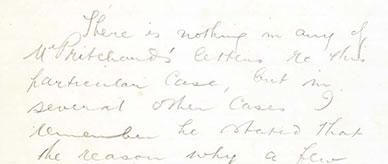 There is nothing in any of
Mr Pritchard's letters re this
particular case, but in
several other cases I
remember he stated that
the reason why a few